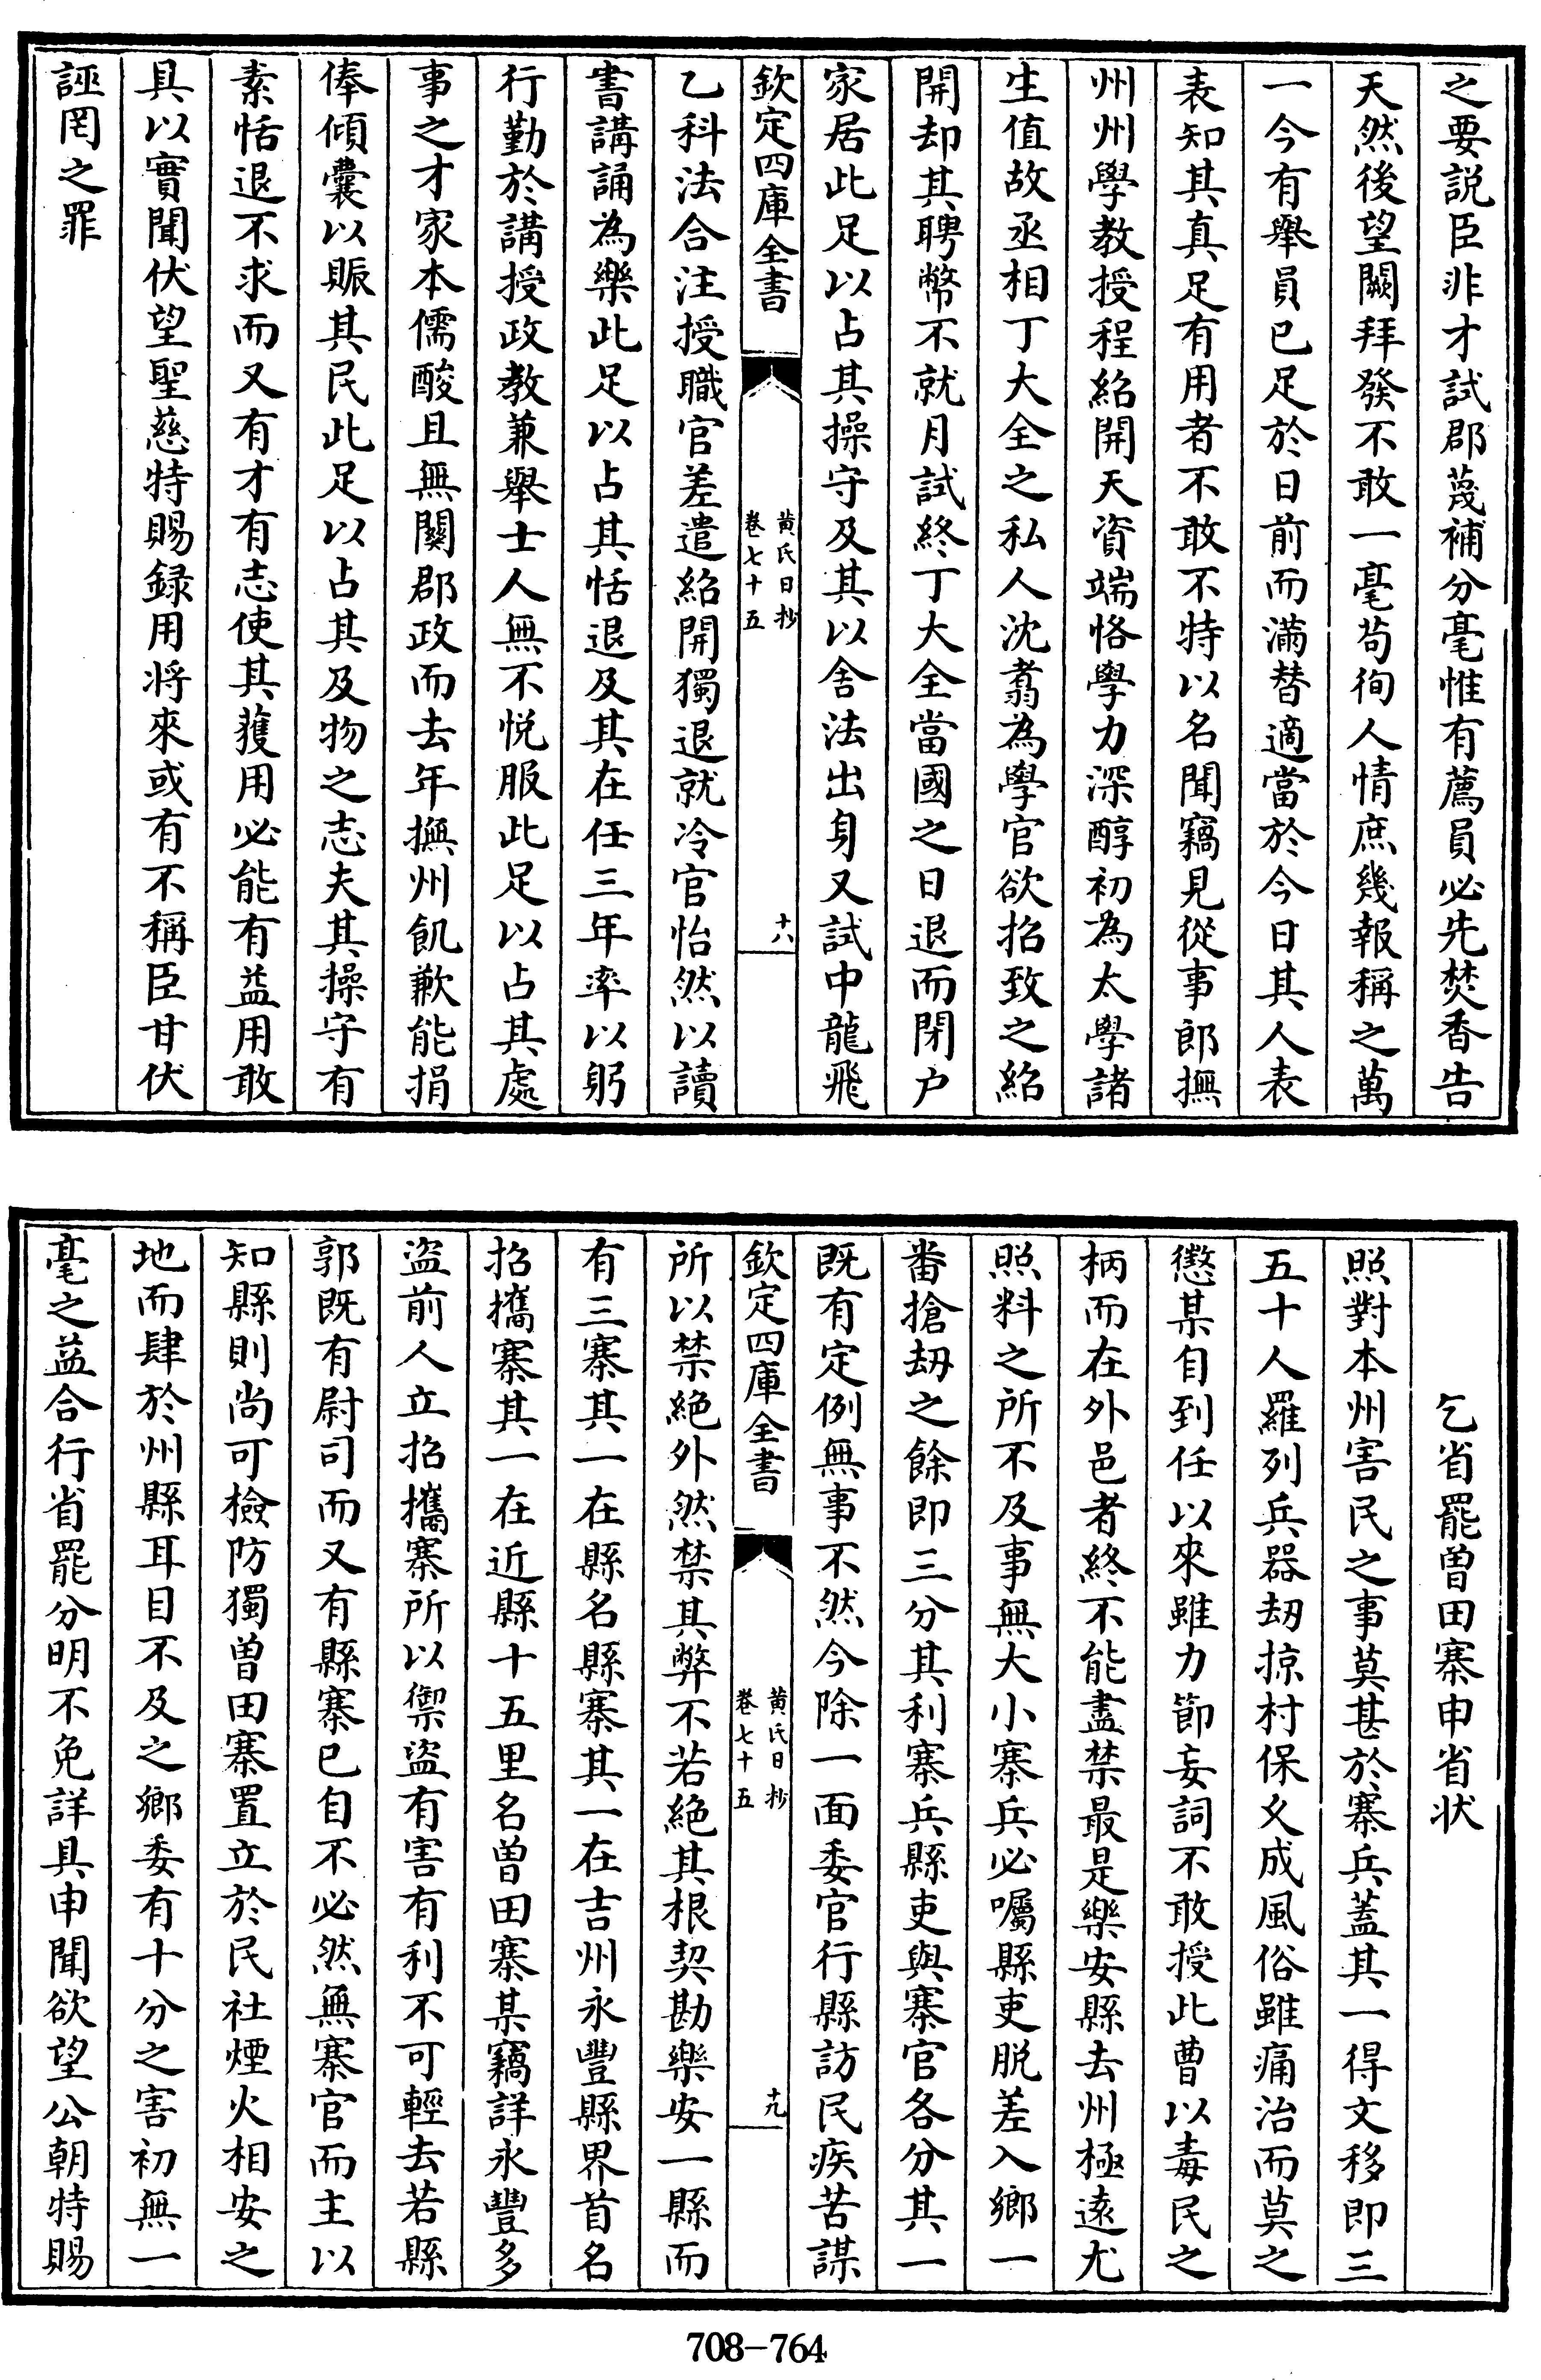 之要説臣非才試郡蔑補分毫惟有薦員必先焚香告
天然後望闕拜發不敢一毫苟徇人情庶幾報稱之萬
一今有舉員已足於日前而滿替適當於今日其人表
表知其真足有用者不敢不特以名聞竊見從事郎撫
州州學教授程紹開天資端恪學力深醇初為太學諸
生值故丞相丁大全之私人沈翥為學官欲招致之紹
開却其聘幣不就月試終丁大全當國之日退而閉户
家居此足以占其操守及其以舍法出身又試中龍飛
欽定四庫全書
黄氏日抄
卷七十五
十八
乙科法合注授職官差遣紹開獨退就冷官怡然以讀
書講誦為樂此足以占其恬退及其在任三年率以躬
行勤於講授政教兼舉士人無不悦服此足以占其處
事之才家本儒酸且無關郡政而去年撫州飢歉能捐
俸傾囊以賑其民此足以占其及物之志夫其操守有
素恬退不求而又有才有志使其獲用必能有益用敢
具以實聞伏望聖慈特賜録用将來或有不稱臣甘伏
誣罔之罪
乞省罷曽田寨申省状
照對本州害民之事莫甚於寨兵蓋其一得文移即三
五十人羅列兵器刼掠村保久成風俗雖痛治而莫之
懲某自到任以來雖力節妄詞不敢授此曹以毒民之
柄而在外邑者終不能盡禁最是樂安縣去州極遠尤
照料之所不及事無大小寨兵必囑縣吏脱差入鄉一
番搶刼之餘即三分其利寨兵縣吏與寨官各分其一
既有定例無事不然今除一面委官行縣訪民疾苦謀
欽定四庫全書
黄氏日抄
卷七十五
十九
所以禁絶外然禁其弊不若絶其根契勘樂安一縣而
有三寨其一在縣名縣寨其一在吉州永豐縣界首名
招攜寨其一在近縣十五里名曽田寨某竊詳永豐多
盜前人立招攜寨所以禦盜有害有利不可輕去若縣
郭既有尉司而又有縣寨已自不必然無寨官而主以
知縣則尚可檢防獨曽田寨置立於民社煙火相安之
地而肆於州縣耳目不及之鄉委有十分之害初無一
毫之益合行省罷分明不免詳具申聞欲望公朝特賜
708-764